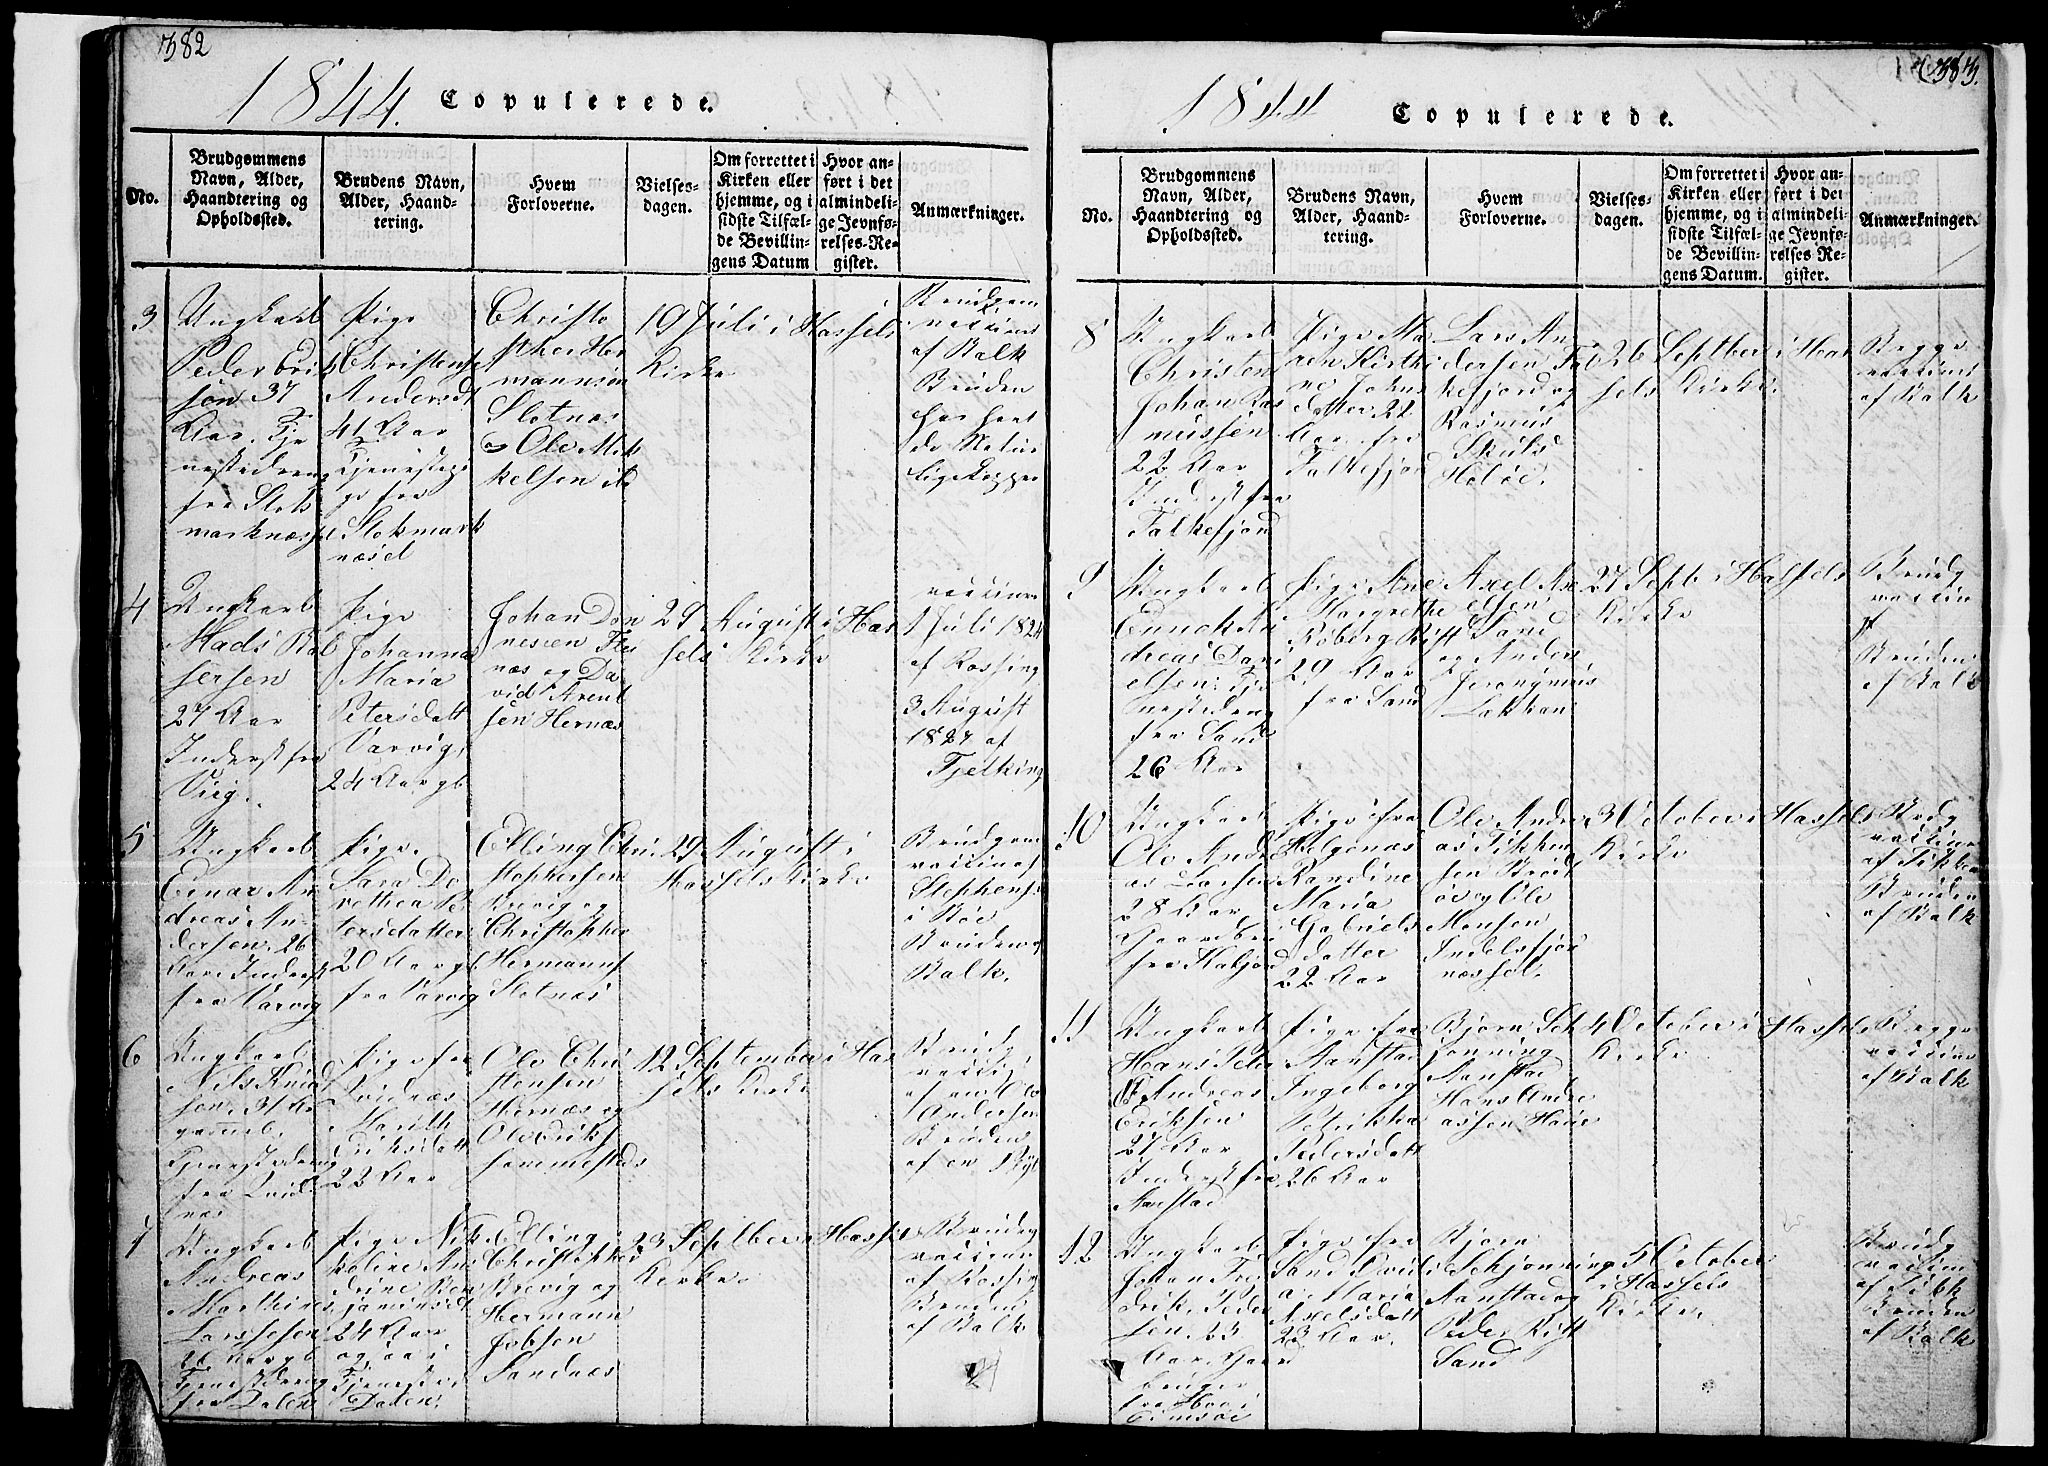 382
1844. Copulerede.
No.
Brudgommens
Navn, Alder,
Haandtering og
Opholdssted.
Brudens Navn,
Alder, Haand-
tering.
Hvem
Forloverne.
Vielses-
dagen.
Om forrettet i
Kirken eller
hjemme, og i
sidste Tilfæl-
de Bevillin-
gens Datum
Hvor an-
ført i det
almindeli-
ge Jevnfø-
relses-Re-
gister.
Anmærkninger.
3
Ungkarl
Peder Erik
sen 37
Aar. Tje
nestedreng
fra Stok
marknæsset
Pige
Christense
Andersdt
41 Aar
Tjenestepi
ge fra
Stokmark
næset
Christo
pher Her
mannsen
Slotnæs
og Ole Mik
kelsen
19 Juli i Hassels
Kirke
Brudgom
vaccineret
af Balk
Bruden
har havt
de Natur
lige Kopper
4
Ungkarl
Mads Bal
sersen
27 Aar
Inderst fra
Viig
Pige
Johanna
Maria
Petersdatt
Varvig
24 Aar gl
Johan Dön
nesen
næs og Da
vid Arent
sen Hernæs
29 August i Has
sels Kirke
vaccineret
1 Juli 1824
af Rossing
3 August
1827 af
Tjelking
5
Ungkarl
Einar An
dreas An
dersen 26
Aar Inderst
fra Varvig
Pige
Sara Do
rethea Pe
tersdatter
20 Aar gl
fra Varvig
Elling Chri
stophersen
Brevig og
Christopher
Hermanns
Slotnæs
29 August i
Hassels Kirke
Brudgom
vaccin af
Stephens
i Böe
Bruden af
Balk.
6
Ungkarl
Nils Knud
sen 31 Ar
gammel
Tjenestedreng
fra Quid
næs
Pige fra
Quidnæs
Marith
Eriksdatt
22 Aar
Ole Chri
stensen
Hernæs og
Ole Eriks
12 September i Has
sels Kirke
Brudg
vaccin
af en Ole
Andersen
Bruden
af en
7
Ungkarl
Andreas
Marthinus
Larssesen
Tjenestedreng
fra Dalen
Pige Nik
koline An
drine Ben
jaminsdt
24 Aar
og
Tjeneste
Dalen
Elling
Christopher
Brevig og
Hermann
Jobsen
Sandnæs
23 Septber i Hassels
Kirke
Brudg
vaccin
af Rossing
Bruden
af Balk
383.
1844 Copulerede.
No.
Brudgommens
Navn, Alder,
Haandtering og
Opholdssted.
Brudens Navn,
Alder, Haand-
tering.
Hvem
Forloverne.
Vielses-
dagen.
Om forrettet i
Kirken eller
hjemme, og i
sidste Tilfæl-
de Bevillin-
gens Datum.
Hvor an-
ført i det
almindeli-
ge Jevnfø-
relses Re-
gister.
Anmærkninger.
8
Ungkarl
Christen
Johan Ras
mussen
22 Aar
Inderst fra
Falkefjord
Pige Ma
ren Kirsti
ne Johns
datter 22
Aar fra
Falkefjord
Lars An
dersen Fal
kefjord og
Rasmus
Skuls
26 Septber i Has
sels Kirke
Begge
vaccineret
af Balk
9
Ungkarl
Ennok An
dreas Dani
elsen Tje
nestedreng
fra Sand
26 Aar
Pige Ane
Margrethe
Rist
29 Aar
fra Sand
Axel Ax
elsen
Sand
og Anders
Jeronymus
27 Septb i Hassels
Kirke
Brudg
vaccin
Bruden
af Balk
10
Ungkarl
Ole Andre
as Larsen
28 Aar
Gaardbr
fra
Pige fra
Helgenæs
Randine
Maria
Gabriels
datter
22 Aar
Ole Andre
as Fikken
sen Bredt
öe og Ole
Monsen
Indelsfjor
næsset
3 October i Hassels
Kirke
Brdg
vaccin
af Fikken
Bruden
af Balk
11
Ungkarl
Hans Peder
Andreas
Eriksen
27 Aar
Inderst fra
Aanstad
Pige fra
Aanstad
Ingeborg
Petrikka
Pedersdatt
26 Aar
Bjørn Sch
jønning
Aanstad
Hans Andre
assen
4 October i Hassels
Kirke
Begge
vaccin
af Balk
12
Ungkarl
Johan Fre
drik Peder
sen 23
Aar Gaard
bruger
Pige fra
Sand
Maria
Axelsdatt
23 Aar.
Bjørn
Schjønning
Aanstad og
Peder Rist
Sand
5 October
i Hassels
Kirke
Brudg
vaccin
af Fikk
Bruden
af Balk